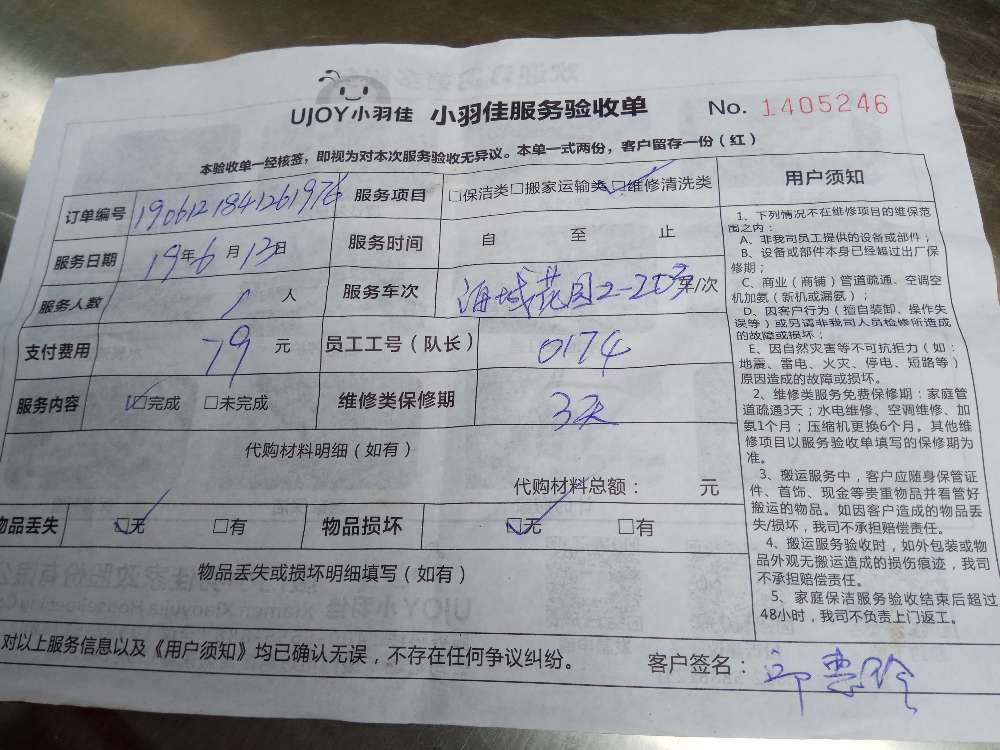 UJOY小羽佳 小羽佳服务验收单 No. 1405246
本验收单一经核签，即视为对本次服务验收无异议。本单一式两份，客户留存一份（红）
订单编号 190612184126197 服务项目 □保洁类□搬家运输类□维修清洗类
服务日期 19年6月12日 服务时间 自 至 止
服务人数 1 人 服务车次 海域花园2-20 车/次
支付费用 79 元 员工工号（队长） 0174
服务内容 □完成 □未完成 维修类保修期 3天
代购材料明细（如有）
代购材料总额： 元
物品丢失 □无 □有 物品损坏 □无 □有
物品丢失或损坏明细填写（如有）
对以上服务信息以及《用户须知》均已确认无误，不存在任何争议纠纷。 客户签名：
用户须知
1、下列情况不在维修项目的维保范
围之内：
A、非我司员工提供的设备或部件；
B、设备或部件本身已经超过出厂保
修期；
C、商业（商铺）管道疏通、空调空
机加氨（新机或漏氨）；
D、因客户行为（擅自装卸、操作失
误等）或另请非我司人员检修所造成
的故障或损坏；
E、因自然灾害等不可抗拒力（如：
地震、雷电、火灾、停电、短路等）
原因造成的故障或损坏。
2、维修类服务免费保修期：家庭管
道疏通3天；水电维修、空调维修、加
氨1个月；压缩机更换6个月。其他维
修项目以服务验收单填写的保修期为
准。
3、搬运服务中，客户应随身保管证
件、首饰、现金等贵重物品并看管好
搬运的物品。如因客户造成的物品丢
失/损坏，我司不承担赔偿责任。
4、搬运服务验收时，如外包装或物
品外观无搬运造成的损伤痕迹，我司
不承担赔偿责任。
5、家庭保洁服务验收结束后超过
48小时，我司不负责上门返工。